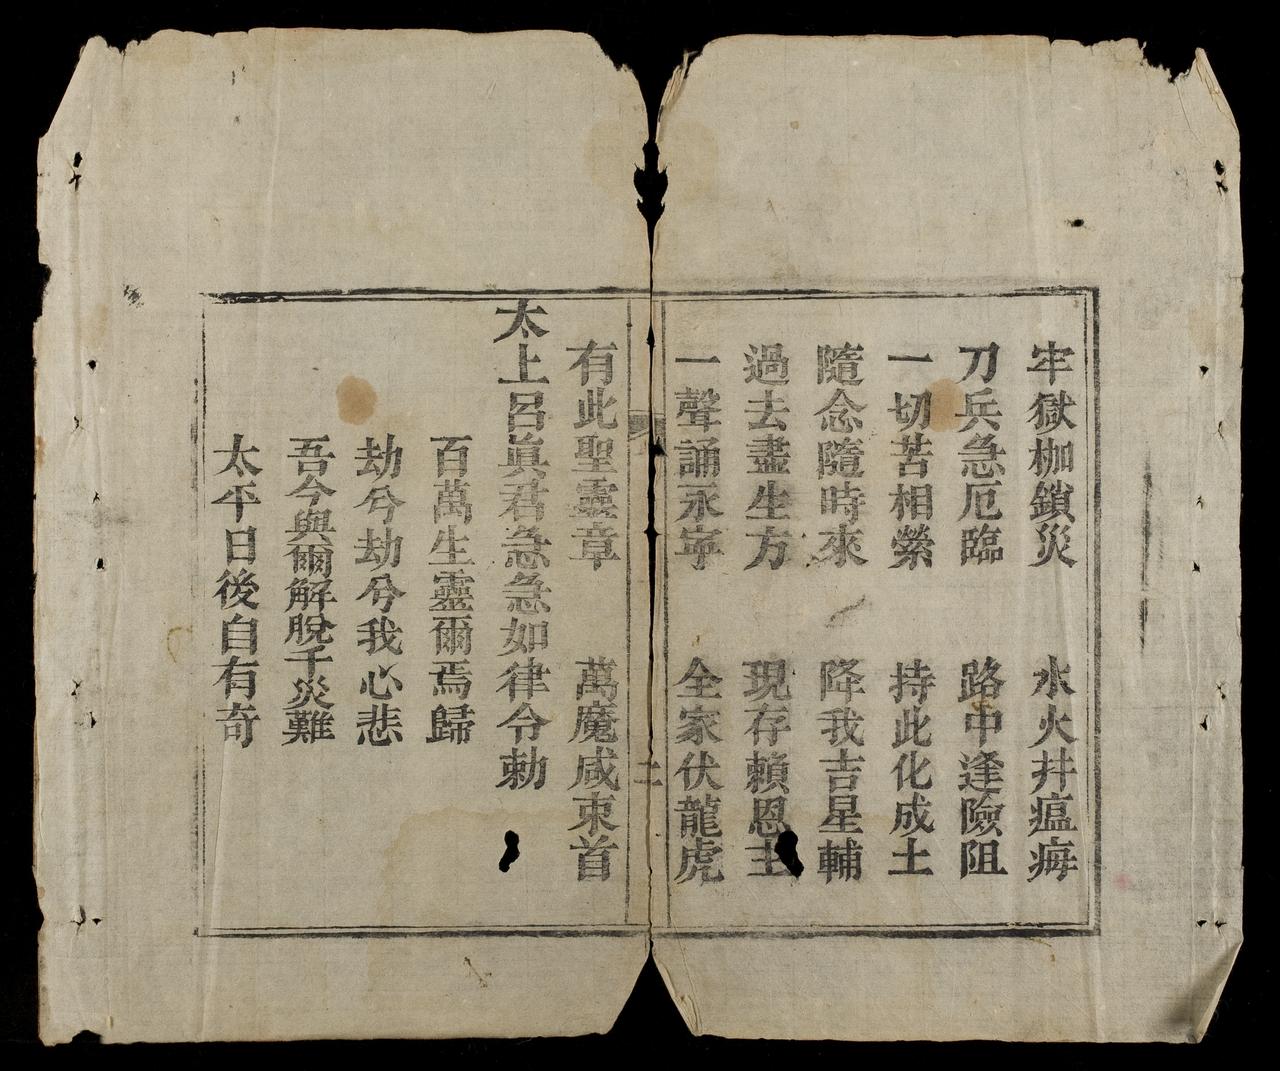 牢獄枷鎖災　水火井瘟痗
刀兵急厄臨　路中逢險阻
一切苦相縈　持此化成土
隨念隨時來　降我吉星輔
過去盡生方　現存賴恩主
一聲誦永寧　全家伏龍虎
二
有此聖靈章　萬魔咸束首
太上呂眞君急急如律令勅
百萬生靈爾焉歸
劫兮劫兮我心悲
吾今與爾解脫千災難
太平日後自有奇